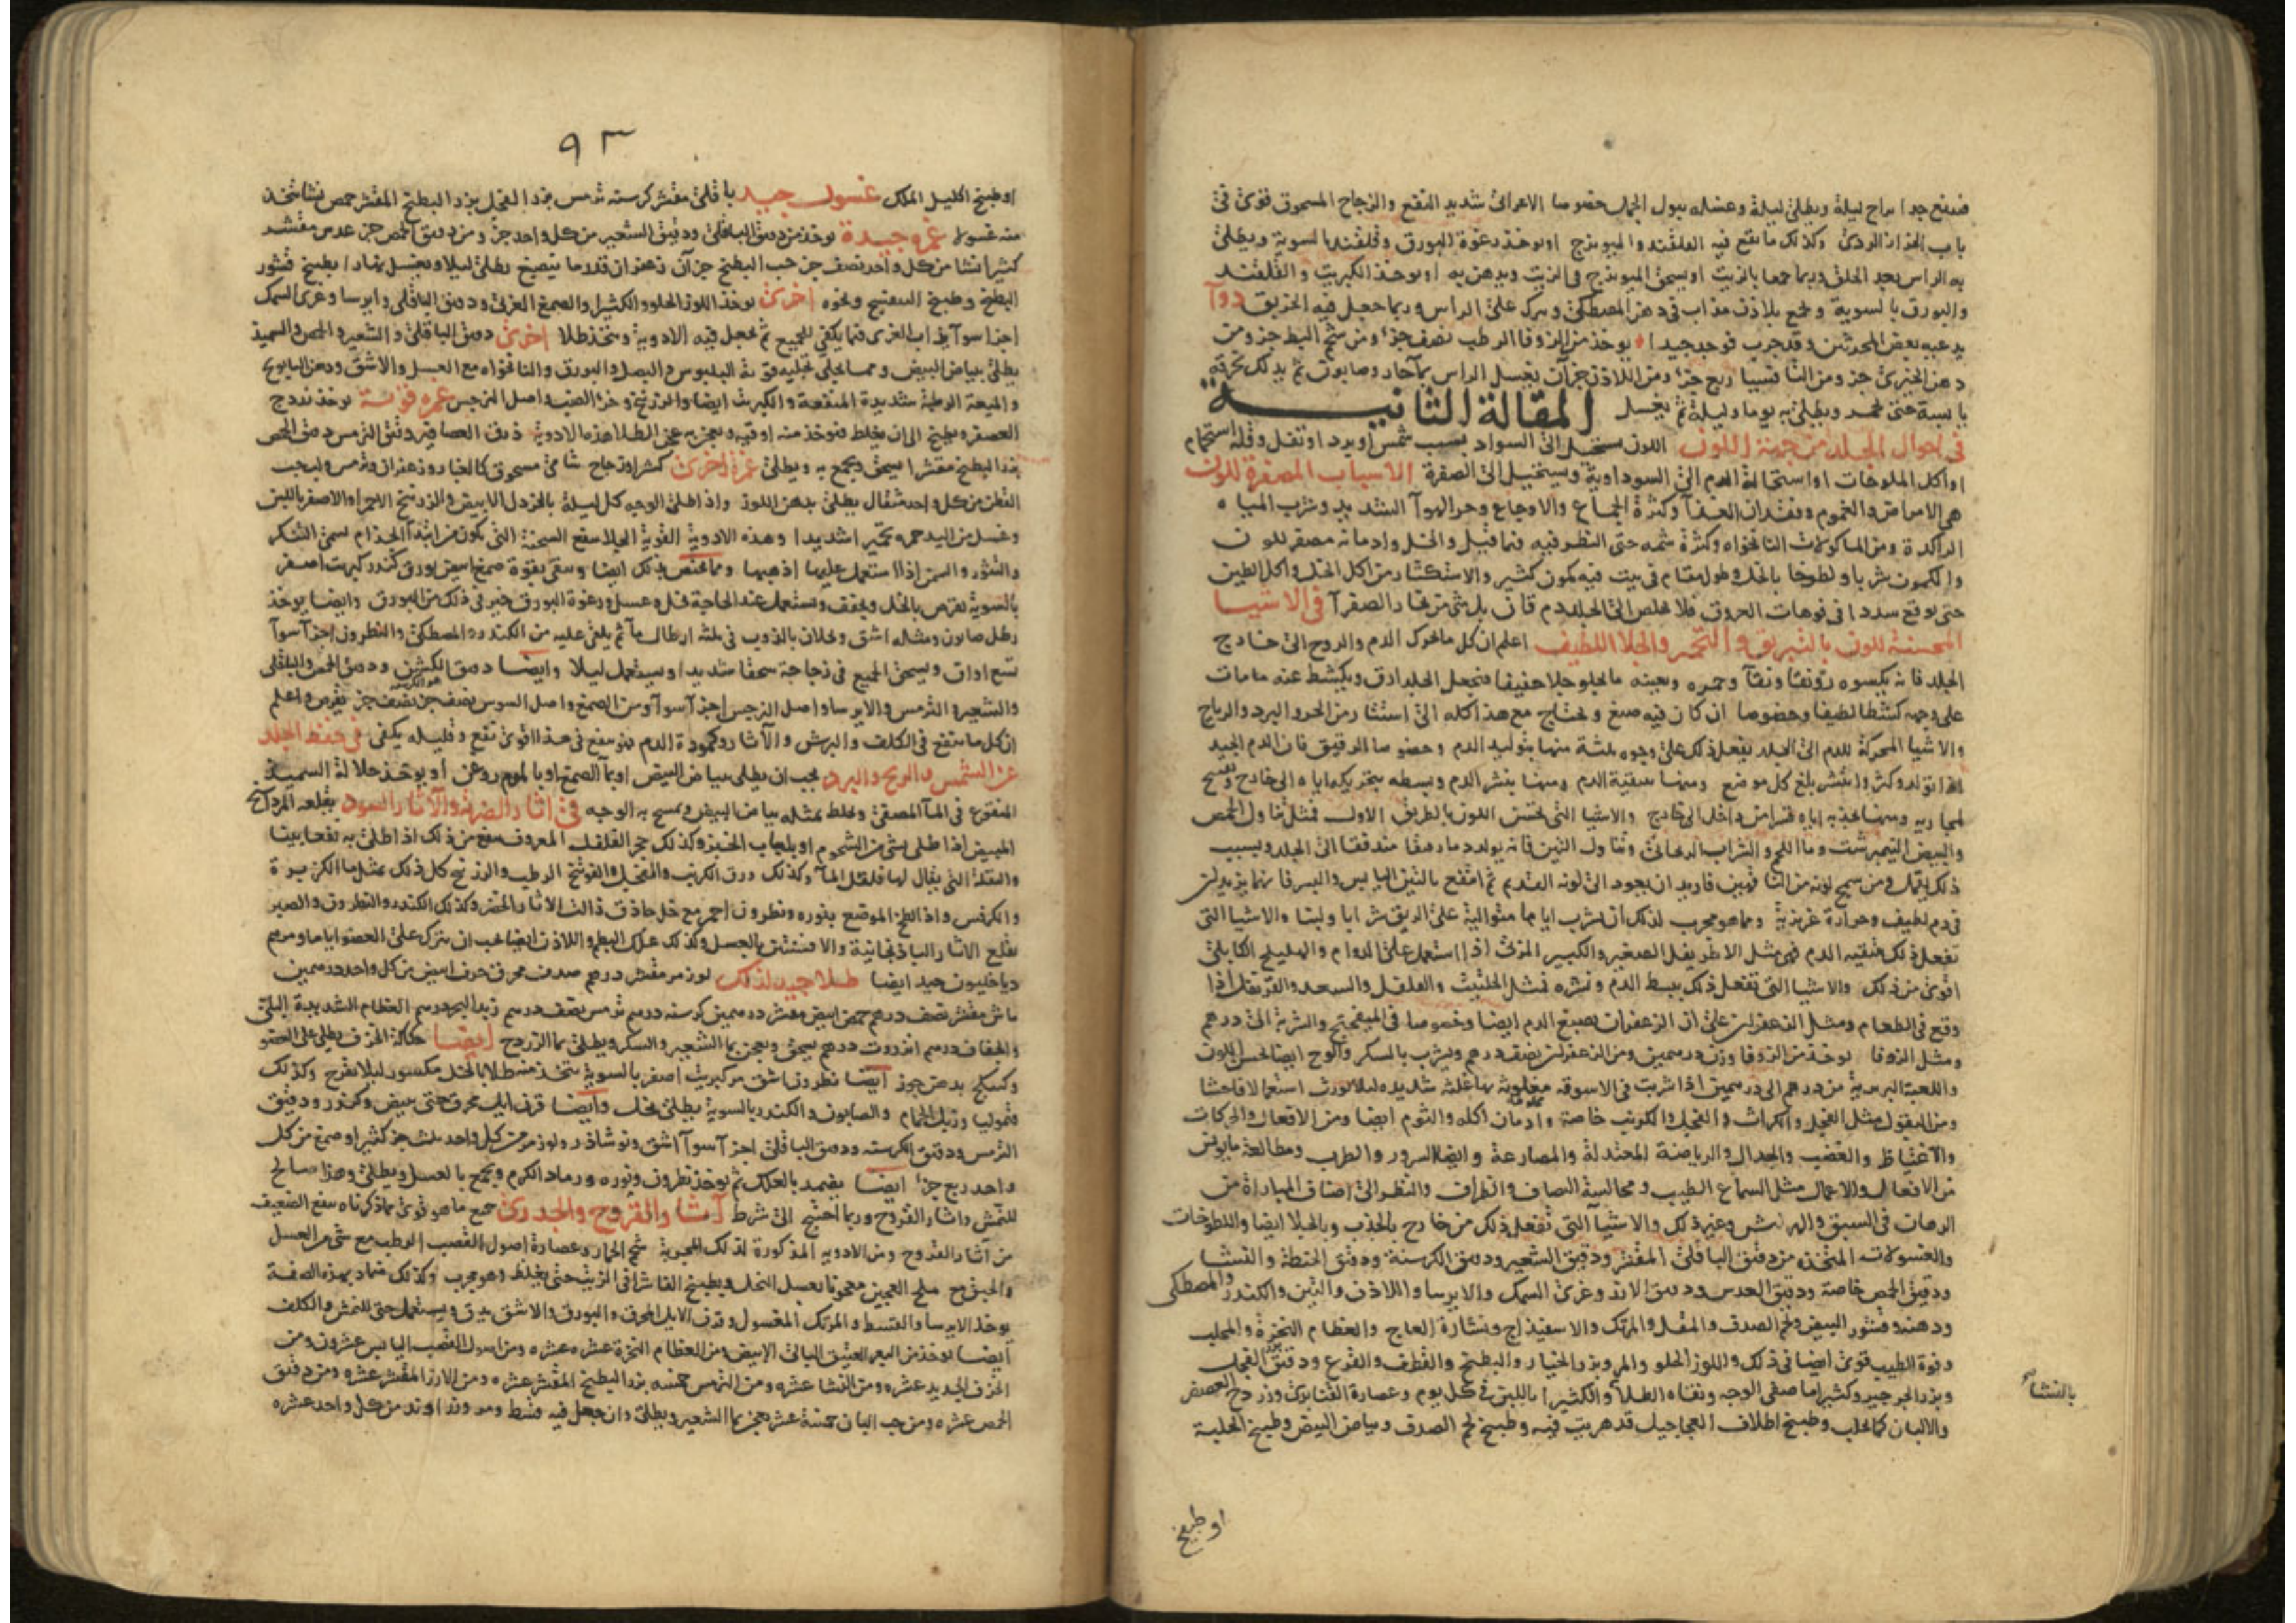 فينفع جدا براح ليلة ويطلى ليلة وغسله ببول الجمل خصوصا الاعرابى شديد النفع والزجاج المسحوق قوى فى
باب الحزاز الردى وكذلك ما يقع فيه القلقند والميويزج او يوخذ رغوة البورق وقلقند بالسوية ويطلى
به الراس بعد الحلق وربما جمعا بالزيت او يسحق الميويزج فى الزيت ويدهن به او يوخذ الكبريت والقلقند
والبورق بالسوية ويجمع بلاذن مذاب فى دهن المصطكى ويترك على الراس وربما جعل فيه الخربق دوآ
يدعيه بعض المحدثين وقد جرب فوجد جيدا يوخذ من الزوفا الرطب نصف جزء ومن شحم البط جز ومن
دهن الخيرى جز ومن الثافسيا ربع جزء ومن اللاذن جزآن يغسل الراس بمآ حار وصابون ثم يدلك بخرقة
يابسة حتى يحمر ويطلى به يوما وليلة ثم يغسل المقالة الثانية
فى احوال الجلد من جهة اللون اللون يستحيل الى السواد بسبب شمس او برد او ثقل وقلة استحمام
او اكل الملوحات او استحالة الدم الى السوداوية ويستحيل الى الصفرة الاسباب المصفرة للون
هى الامراض والغموم وفقدان الغذآ وكثرة الجماع والاوجاع وحر الهوآ الشديد وشرب المياه
الراكدة ومن الماكولات النانخواه وكثرة شمه حتى النظر فيه فيما قيل والخل وادمانه مصفر للون
والكمون شربا ولطوخا بالخل وطول مقام فى بيت فيه كمون كثير والاستكثار من اكل الخل واكل الطين
حتى يوقع سددا فى فوهات العروق فلا يخلص الى الجلد دم قان بل شئ من بخار الصفرآ فى الاشيا
المحسنة للون بالتبريق والتحمير والجلا اللطيف اعلم ان كل ما يحرك الدم والروح الى خارج
الجلد فانه يكسوه رونقا ونقآ وحمره ويعينه ما يجلو جلا خفيفا فيجعل الجلد ارق ويكشط عنه ما مات
على وجهه كشطا لطيفا وخصوصا ان كان فيه صبغ ويحتاج مع هذا كله الى استتار من الحر والبرد والرياح
والاشيا المحركة للدم الى الجلد يفعل ذلك على وجوه ثلثة منها بتوليد الدم وخصوصا الرقيق فان الدم الجيد
اذا تولد وكثر وانتشر بلغ كل موضع ومنها بتنقية الدم ومنها بنشر الدم وبسطه بتحريكه اياه الى خارج
لمجاريه ومنها بجذبه اياه قسرا من داخل الى خارج والاشيا التى تحسن اللون بالطريق الاول فمثل تناول الحمص
والبيض النيمبرشت ومآ اللحم والشراب الريحانى وتناول التين فانه يولد دما رقيقا مندفقا الى الجلد وبسبب
ذلك يقمل ومن سمج لونه من الناقهين فاريد ان يعود الى لونه القديم ثم انتفع بالتين اليابس والبسر فانهما يزيدان
فى دم لطيف وحرارة غريزية ومما هو مجرب لذلك ان يشرب اياما متوالية على الريق شرابا ولبنا والاشيا التى
تفعل ذلك بتنقيه الدم فهى مثل الاطريفل الصغير والكبير المربى اذا استعمل على الدوام والهليلج الكابلى
اقوى من ذلك والاشيا التى تفعل ذلك ببسط الدم ونشره فمثل الحلتيت والفلفل والسعد والقرنفل اذا
وقع فى الطعام ومثل الزعفران على ان الزعفران يصبغ الدم ايضا وخصوصا فى الميفختج والشربة الى درهم
ومثل الزوفا يوخذ من الزوفا وزن درهمين ومن الزعفران نصف درهم ويشرب بالسكر والوج ايضا لحسن اللون
واللعبة البربرية من درهم الى درهمين اذا شربت فى الاسوقه
ومن البقول مثل الفجل والكراث والبصل والكرنب خاصة وادمان اكله والثوم ايضا ومن الافعال والحركات
والاغتياظ والغضب والجدال والرياضة المعتدلة والمصارعة وايضا السرور والطرب ومطالعة ما يونس
من الافعال والاعمال مثل السماع الطيب ومجالسة الصاف والظراف والنظر الى اصناف المباراة من
الرهان فى السبق والهراش وغير ذلك والاشيآ التى تفعل ذلك من خارج بالجذب وبالجلا ايضا واللطوخات
والغسولات المتخذه من دقيق الباقلى المقشر ودقيق الشعير ودقيق الكرسنة ودقيق الحنطة والنشا
ودقيق الحمص خاصة ودقيق العدس ودقيق الارز وغرى السمك والايرسا واللاذن والتين والكندر والمصطكى
ودهنه وقشور البيض ولحم الصدف والمقل والمرتك والاسفيذاج ونشارة العاج والعظام النخرة والمحلب
وفوة الطيب قوى ايضا فى ذلك واللوز الحلو والمر وبزر الخيار والبطيخ والقطف والقرع ودقيق بزر الفجل
وبزر الجرجير وكثيرا ما صفى الوجه ونقاه الطلآ والكثيرا باللبن فى كل يوم وعصارة القنابرى وزردج العصفر
بالنشا
والالبان كما تحلب وطبيخ اظلاف العجاجيل قد هريت فيه وطبيخ لحم الصدف وبياض البيض وطبيخ الحلبة
او طبيخ
٩٣
او طبيخ اكليل الملك غسول جيد باقلى مقشر كرسنه ترمس بزر الفجل بزر البطيخ المقشر حمص نشا يتخذ
منه غسولا غمره جيدة يوخذ من دقيق الباقلى ودقيق الشعير من كل واحد جز ومن دقيق الحمص جز عدس مقشر
كثيرا نشا من كل واحد نصف جز حب البطيخ جزآن زعفران قدر ما يصبغ يطلى ليلا ويغسل نهارا بطبيخ قشور
البطيخ وطبيخ البنفسج ونحوه اخرى يوخذ اللوز الحلو والكثيرا والصمغ العربى ودقيق الباقلى وايرسا وغرى السمك
اجزا سوآ يذاب الغرى فيما يكفى للجميع ثم يجعل فيه الادوية ويتخذ طلا اخرى دقيق الباقلى والشعير والحمص والسميذ
يطلى ببياض البيض ومما يجلى تجليه قوية البلبوس والبصل والبورق والنانخواه مع العسل والاشق ودهن البابونج
والميعة الرطبة شديدة المنفعة والكبريت ايضا والزرنيخ وخرء الضب واصل النرجس غمره قوية يوخذ زردج
العصفر ويطبخ الى ان يغلظ فيوخذ منه اوقيه ويعجن به عجن الطلا هذه الادوية ذرق العصافير دقيق الترمس دقيق الحمص
بزر البطيخ مقشرا يسحق ويجمع به ويطلى غمرة اخرى كثيرا وزجاج شامى مسحوق كالغبار وزعفران وترمس ولب حب
القطن من كل واحد مثقال يطلى بدهن اللوز واذا طلى الوجه كل ليلة بالخردل الابيض والزرنيخ الاحمر او الاصفر باللبن
وغسل من اليد حمره تحميرا شديدا وهذه الادوية القوية الجلا ينفع السحنة التى تكون من ابتدآ الجذام
والبثور والسمن اذا استعمل عليها اذهبها ومما يختص بذلك ايضا وينقى بقوة صمغ ابيض بورق كندر كبريت اصفر
بالسوية يقرص بالخل ويجفف ويستعمل عند الحاجة بخل وعسل ورغوة البورق خير فى ذلك من البورق وايضا يوخذ
رطل صابون ومثله اشق ويحلان بالذوب فى ثلثة ارطال مآ ثم يلقى عليه من الكندر والمصطكى والنطرون اجزآ سوآ
تسع اواق ويسحق الجميع فى زجاجة سحقا شديدا ويستعمل ليلا وايضا دقيق الكرسنة ودقيق الحمص والباقلى
والشعير والترمس والايرسا واصل النرجس اجزآ سوآ ومن الصمغ واصل السوس نصف جز نصف جز يقرص واعلم
ان كل ما ينفع فى الكلف والبرش والآثار وكمودة الدم فهو ينفع فى هذا اقوى نفع وقليله يكفى فى حفظ الجلد
عن الشمس والريح والبرد يجب ان يطلى ببياض البيض او بمآ الصمغ او بالموم روغن او يوخذ حلالة السميذ
المنقوع فى المآ المصفى ويخلط بمثله بياض البيض ويمسح به الوجه فى اثار الضربة والآثار السود يقلعه المرداسنج
المبيض اذا طلى بشئ من الشحوم او بلعاب الخبز وكذلك حجر الفلفل المعروف ينفع من ذلك اذا طلى به نفعا بينا
والبقلة التى يقال لها فلفل المآ وكذلك ورق الكرنب والفجل والفوتنج الرطب والزرنيخ كل ذلك بمثل مآ الكزبرة
والكرفس واذا لطخ الموضع بنوره ونطرون احمر مع خل حاذق ذالت الاثار الخضر وكذلك الكندر والنطرون والصبر
يقلع الاثار الباذنجانية والافسنتين بالعسل وكذلك علك البطم واللاذن ايضا يجب ان يترك على العضو اياما ومرهم
دياخليون جيد ايضا طلا جيد لذلك لوز مر مقشر درهم صدف محرق خزف ابيض من كل واحد درهمين
ماش مقشر نصف درهم حمص ابيض مقشر درهمين كرسنه درهم ترمس نصف درهم زبد البحر درهم العظام الشديدة البلى
والجفاف درهم انزروت درهم يسحق ويعجن بما الشعير والسكر ويطلى بما الزردج ايضا حكاكة الخزف يطلى على العضو
وكسبج بدهن جوز ايضا نطرون اشق مر كبريت اصفر بالسوية يتخذ منه طلا بالخل مكسور ليلا يقرح وكذلك
قيموليا وزبل الحمام والصابون والكندر بالسوية يطلى بخل وايضا قرن ايل محرق حتى يبيض وكندر ودقيق
الترمس ودقيق الكرسنه ودقيق الباقلى اجزآ سوآ اشق ونوشاذر ولوز مر من كل واحد ثلث جز كثيرا وصمغ من كل
واحد ربع جزء ايضا يضمد بالعلك ثم يوخذ نطرون ونوره ورماد الكرم ويجمع بالعسل ويطلى وهذا صالح
للنمش واثار القروح وربما احتيج الى شرط آثار القروح والجدرى جميع ما هو قوى مما ذكرناه ينفع الضعيف
من آثار القروح ومن الادويه المذكورة لذلك المجربة شحم الحمار وعصارة اصول القصب الرطب مع شئ من العسل
ملح العجين معجونا بعسل النحل ويطبخ الفاشرا فى الزيت حتى يغلظ وهو مجرب وكذلك ضماد بهذه الصفة
يوخذ الايرسا والقسط والمرتك المغسول وقرن الايل المحرق والبورق والاشق يدق ويستعمل حتى للنمش والكلف
ايضا يوخذ من البعر العتيق البالى الابيض ومن العظام النخرة عشره عشره ومن اصول القصب اليابس عشرون ومن
الخزف الجديد عشره ومن النشا عشره ومن الترمس خمسه بزر البطيخ المقشر عشره ومن الارز المقشر عشره ومن دقيق
الحمص عشره ومن حب البان خمسة عشر يعجن بما الشعير ويطلى وان جعل فيه قسط ومر وزراوند من كل واحد عشره